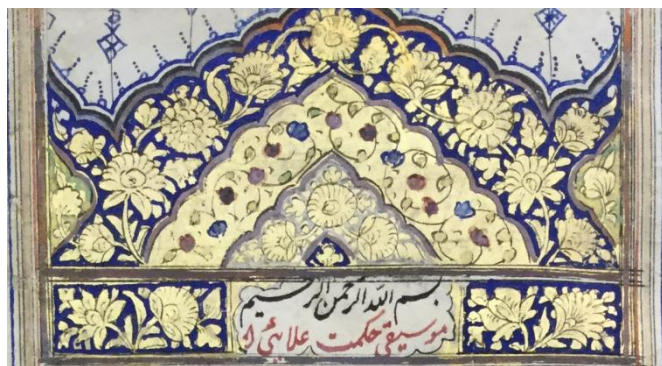 بسم الله الرحمن الرحیم
موسیقی حکمت علائی